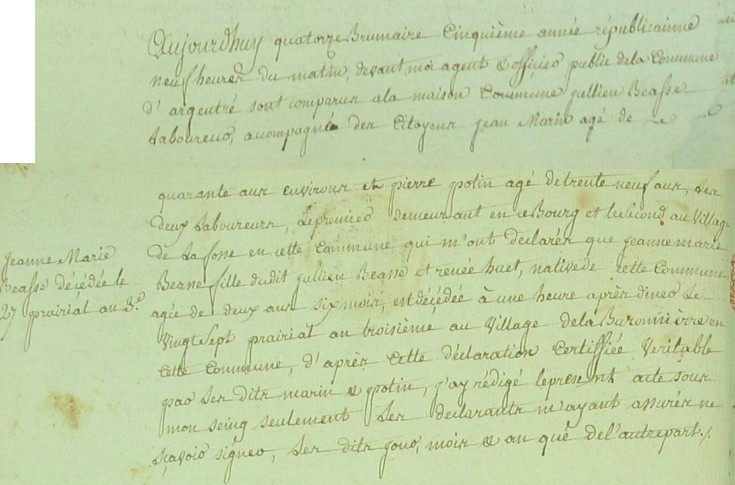 Aujourdhuy quatorze Brumaire Cinquième année républicainne
neuf heures du matin, devant moi agent & officier public dela Commune
d'argentré sont comparus ala maison Commune jullien Beasse
Laboureur, acompagné des Citoyens jean Marin agé de
quarante ans environs et pierre potin agé detrente neuf ans, Les
deux Laboureurs, Lepremier demeurant en ce Bourg et lesecond au Village
de La fosse en cette Commune qui m'ont déclarés que jeanne marie
Beasse fille dudit jullien Beasse et renée huet, nativede cette Commune
agée de deux ans six mois, est décédée à une heure après diner Le
Vingt Sept prairial an troisième au Village dela Buronnière en
Cette Commune, d'après Cette déclaration Certiffiée Veritable
par Les dits marin & potin, j'ay rédigé lepresent acte sous
mon seing seulement Les déclarants m'ayant assurés ne
sçavoir signer, Les dits jour, mois & an que del'autrepart./.
Jeanne Marie
Beasse décédée le
27 prairial an 3.e